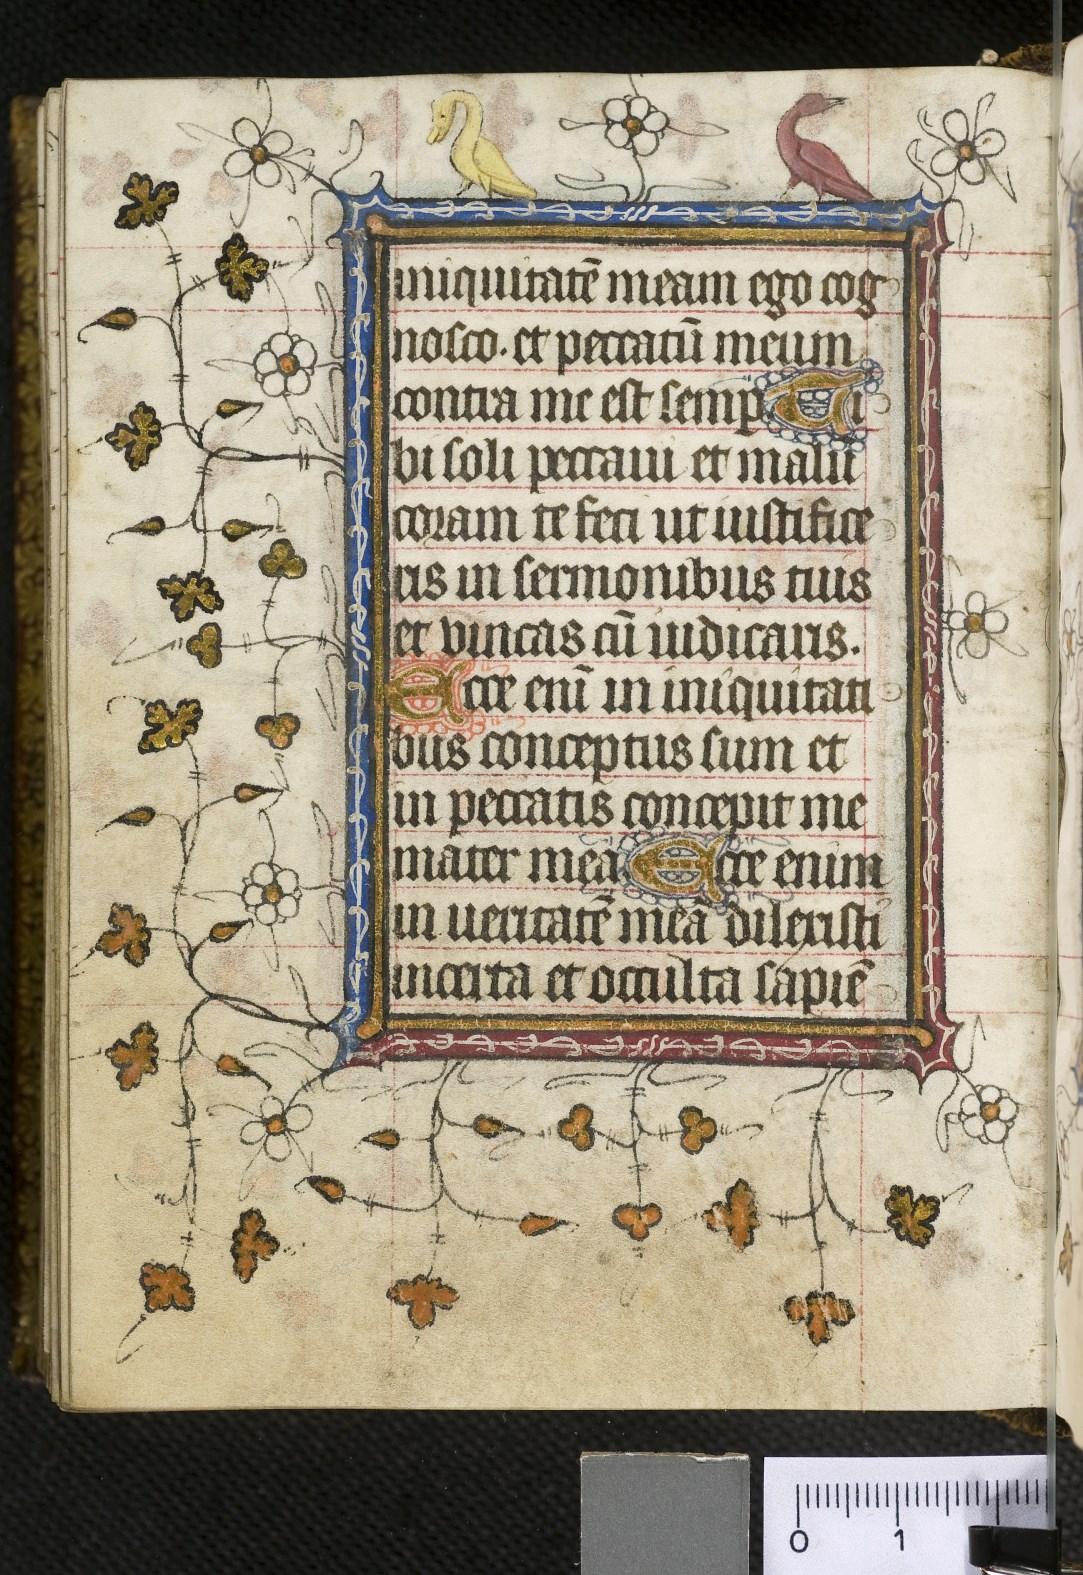 iniquitatē meam ego cog
nosco. et peccatū meum
contra me est semp Ti
bi soli peccaui et malū
coram te feci ut iustifice
ris in sermonibus tuis
et vincas cū iudicaris.
Ecce enī in iniquitati
bus conceptus sum et
in peccatis concepit me
mater mea Ecce enim
in ueritatē meā dilexisti
incerta et occulta sapiē
0 1